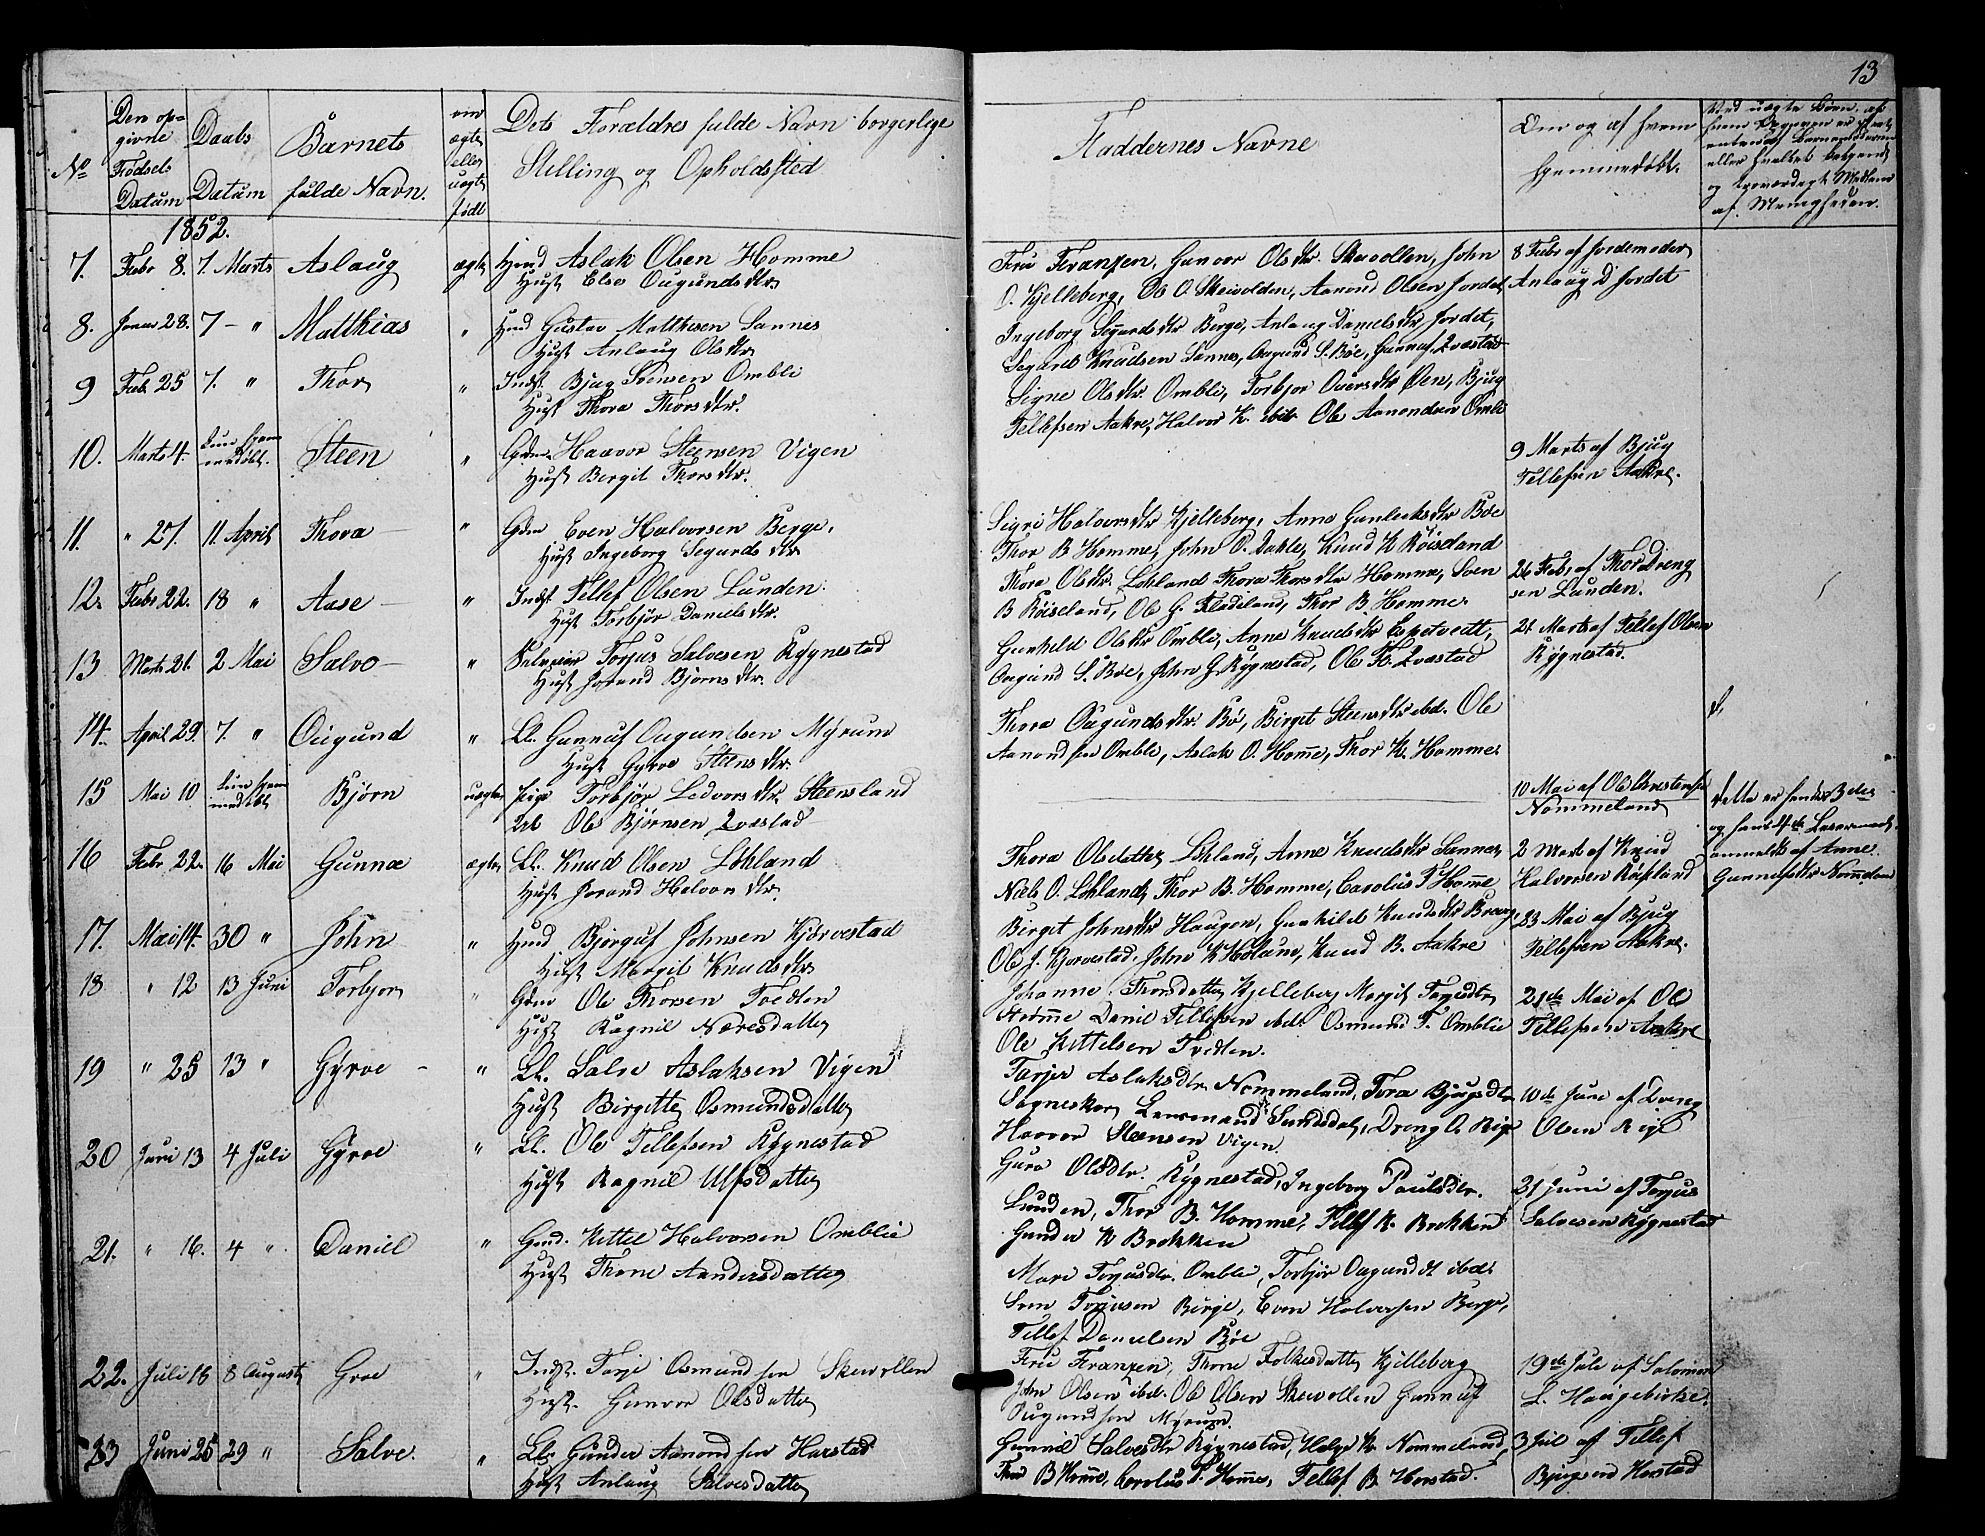 13
No
Den op-
givne
Fødsels
Datum
Daabs
Datum
Barnets
fulde Navn.
om
ægte
eller
uægte
født
Dets Forældres fulde Navn borgerlige
Stilling og Opholdsted
Faddernes Navne
Om og af hvem
hjemmedøbt.
Ved uægte Børn, af
af Menigheden.
1852.
7. Febr 8. 7. Marts Aslaug ægte Gmd Aslak Olsen Homme
Hust Else Ougundsdtr
Fru Franzen, Gunvor Olsdtr Skevollen, John
O. Kjelleberg, Ole O. Skeivolden, Aanond Olsen Jordet
8 Febr af Jordemoder
Anlaug D Jordet
8. Januar 28. 7 - " Matthias " Gmd Gustav Matthisen Sannes
Hust Anlaug Olsdtr
Ingeborg Segurdsdtr Berge, Anlaug Danielsdtr Jordet,
Segurd Knudsen Sannes, Ougund S. Bøe, Gunnuf Qvæstad
9 Feb. 25 7. " Thor " Indst. Bjug Svensen Omblie
Hust Thora Thorsdtr.
Signe Olsdtr. Omblie, Torbjør Overs dtr Øen, Bjug
Tellefsen Aakre, Halvor K. ibdr Ole Aanondsen Ombli
10. Marts 4. kun hjem
medøbt. Steen " Gdm. Haavor Steensen Vigen
Hust Bergit Thorsdtr.
9 Marts af Bjug
Tellefsen Aakre.
11. " 27. 11. April Thora " Gdm Even Halvorsen Berge,
Hust Ingeborg Segurdsdtr
Sigri Halvorsdtr Kjelleberg, Anne Gunleiksdtr Bøe
Thor B Homme, John P. Dahle, Knud K Røisland
12. Febr 22. 18 " Aase " Indst. Tellef Olsen Lunden.
Hust Torbjør Danielsdtr.
Thora Olsdtr. Løkland Thora Thorsdtr Homme, Sven
B Røiseland, Ole G. Fladeland, Thor B. Homme
26 Feb. af Thor Dreng
sen Lunden.
13 Marts 21. 2 Mai Salve " Selveier Torjus Salvesen Rygnestad
Hust Jorand Bjørnsdtr.
Gunhild Olsdtr Omblie, Anne Knudsdtr Espetveitt,
Ougund S. Bøe, John G Rygnestad, Ole Th. Qvæstad
21 Marts af Tellef Olsen
Rygnestad.
14. April 29. 7. " Ougund " Ll. Gunnuf Ougundsen Myrum
Hust Gyroe Steensdtr.
Thora Ougundsdtr. Bø, Birgit Steensdtr ibd. Ole
Aanondsen Omblie, Aslak O. Homme, Thor K. Homme
15 Mai 10 kun hjem
medøbt Bjørn uægte Pige Torbjør Ledvorsdtr. Steensland
Ole Bjørnsen Qvæstad
10 Mai af Ole Christensen
Nommeland
Dette er hendes 3die
og hans 4de Leiermaal
anmeldt af Anne
Gunnufsdtr Nommeland
16 Febr 22. 16 Mai Gunnæ ægte Ll. Knud Olsen Løkland
Hust Jorand Halvorsdtr.
Thora Olsdatter Løkland, Anne Knudsdtr Sannes,
Niels O. Løkland, Thor B. Homme, Carolus T Homme
2 Marts af Knud
Halvorsen Røisland
17. Mai 14. 30 " John " Gmd Bjørguf Johnsen Kjørvestad
Hust Margit Knudsdtr
Birgit Johnsdtr Haugen, Gunhild Knudsdtr Brang,
Ole J. Kjørvestad, John K Holane, Knud B. Aakre
23 Mai af Bjug
Tellefsen Aakre.
18 " 12 13 Juni Torbjor " Gdm Ole Thorsen Tvedten
Hust Ragnil Næresdatter
Johanne Thorsdatter Kjelleberg Margit Targedtr
Strømme Daniel Tellefsen ibd. Osmund T. Omblie
Ole Kittelsen Tvedten.
21de Mai af Ole
Tellefsen Aakre
19 " 25 13 " Gyroe " Ll. Salve Aslaksen Vigen
Hust Birgitte Osmundsdatter
Tarjer Aslaksdtr Nommeland, Tora Bjugsdtr
Sagneskar, Lensmand Sundsdal, Dreng O. Rige
Haavor Steensen Vigen.
10de Juni af Dreng
Olsen Rige
20 Juni 13 4 Juli Gyroe " Ll. Ole Tellefsen Rygnestad
Hust Ragnil Ulfsdatter
Guro Olsdtr. Rygnestad, Ingeborg Paulsdtr.
Lunden, Thor B. Homme, Tellef K. Brokken
Gunder K Brokken
21 Juni af Torjus
Salvesen Rygnestad
21. " 16. 4 " Daniel " Gmd. Kittel Halvorsen Omblie
Hust Thone Aandersdatter
Mari Torjusdtr. Omblie, Torbjør Ougundsdt ibd.
Sven Torjusen Børje, Even Halvorsen Berge,
Tellef Danielsen Bøe
22. Juli 16 8 August Groe " Indst. Tarje Osmundsen Skevollen
Hust. Gunvor Olesdatter
Fru Franzen, Thone Folkesdatter Kjelleberg
John Olsen ibd. Ole Olsen Skevollen Gunnuf
Ougundsen Myrum
19de Juli af Salomon
L. Haugebirke.
23 Juni 25 29 " Salve. " Ll. Gunder Aanondsen Harstad
Hust Anlaug Salvesdatter
Gunnil Salvesdtr Rygnestad, Helge K. Nommeland,
Thor B Homme, Carolus T. Homme, Tellef B Harstad.
3 Juli af Tellef
Bjugsen Harstad